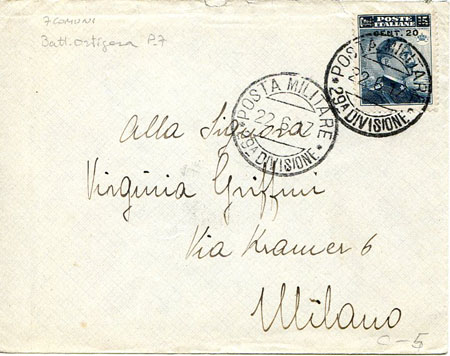 7 COMUNI
Batt. Ortigara P.7
15 POSTE 15
ITALIANE
CENT. 20
POSTA MILITARE
22.6.17
29A DIVISIONE
POSTA MILITARE
22.6.17
29A DIVISIONE
Alla Signora
Virginia Griffini
Via Kramer 6
Milano
C-5